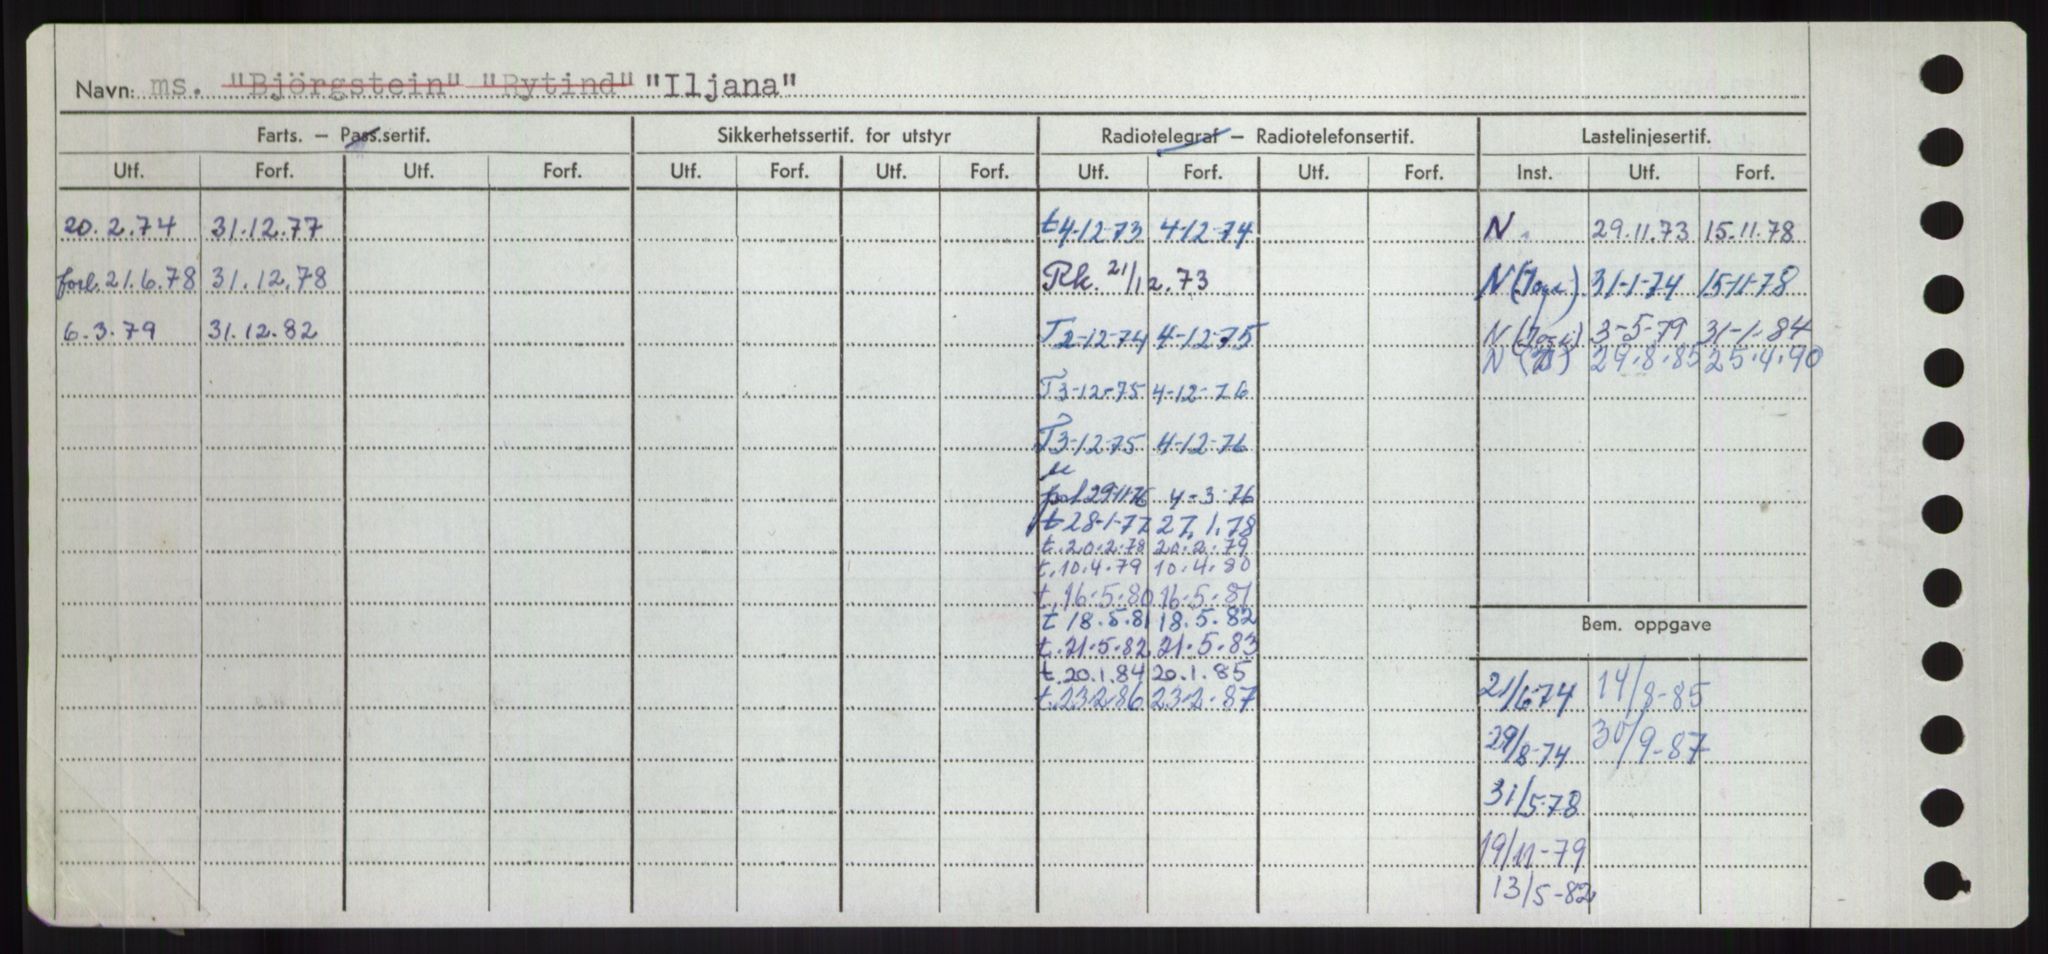 Navn: ms. "Björgstein" "Rytind" "Iljana"
Farts. — Pass.sertif. Sikkerhetssertif. for utstyr Radiotelegraf — Radiotelefonsertif. Lastelinjesertif.
Utf. Forf. Utf. Forf. Utf. Forf. Utf. Forf. Utf. Forf. Utf. Forf. Inst. Utf. Forf.
20.2.74 31.12.77 t4-12-73 4-12-74 N. 29.11.73 15.11.78
forl. 21.6.78 31.12.78 Rk. 21/12.73 N 31-1-74 15-11-78
6.3.79 31.12.82 T2-12-74 4-12-75 N 3-5-79 31-1-84
N 29.8.85 25.4.90
T3-12-75 4-12-76
T3-12-75 4-12-76
29-11-76 4-3-76
t28-1-77 27.1.78
t.20.2.78 20.2.79
t.10.4.79 10.4.80
t.16.5.80 16.5.81
t 18.5.81 18.5.82
Bem. oppgave
t.21.5.82 21.5.83
t.20.1.84 20.1.85
21/6-74 14/8-85
t.23.2.86 23.2.87
29/8-74 30/9-87
31/5-78
19/11-79
13/5-82